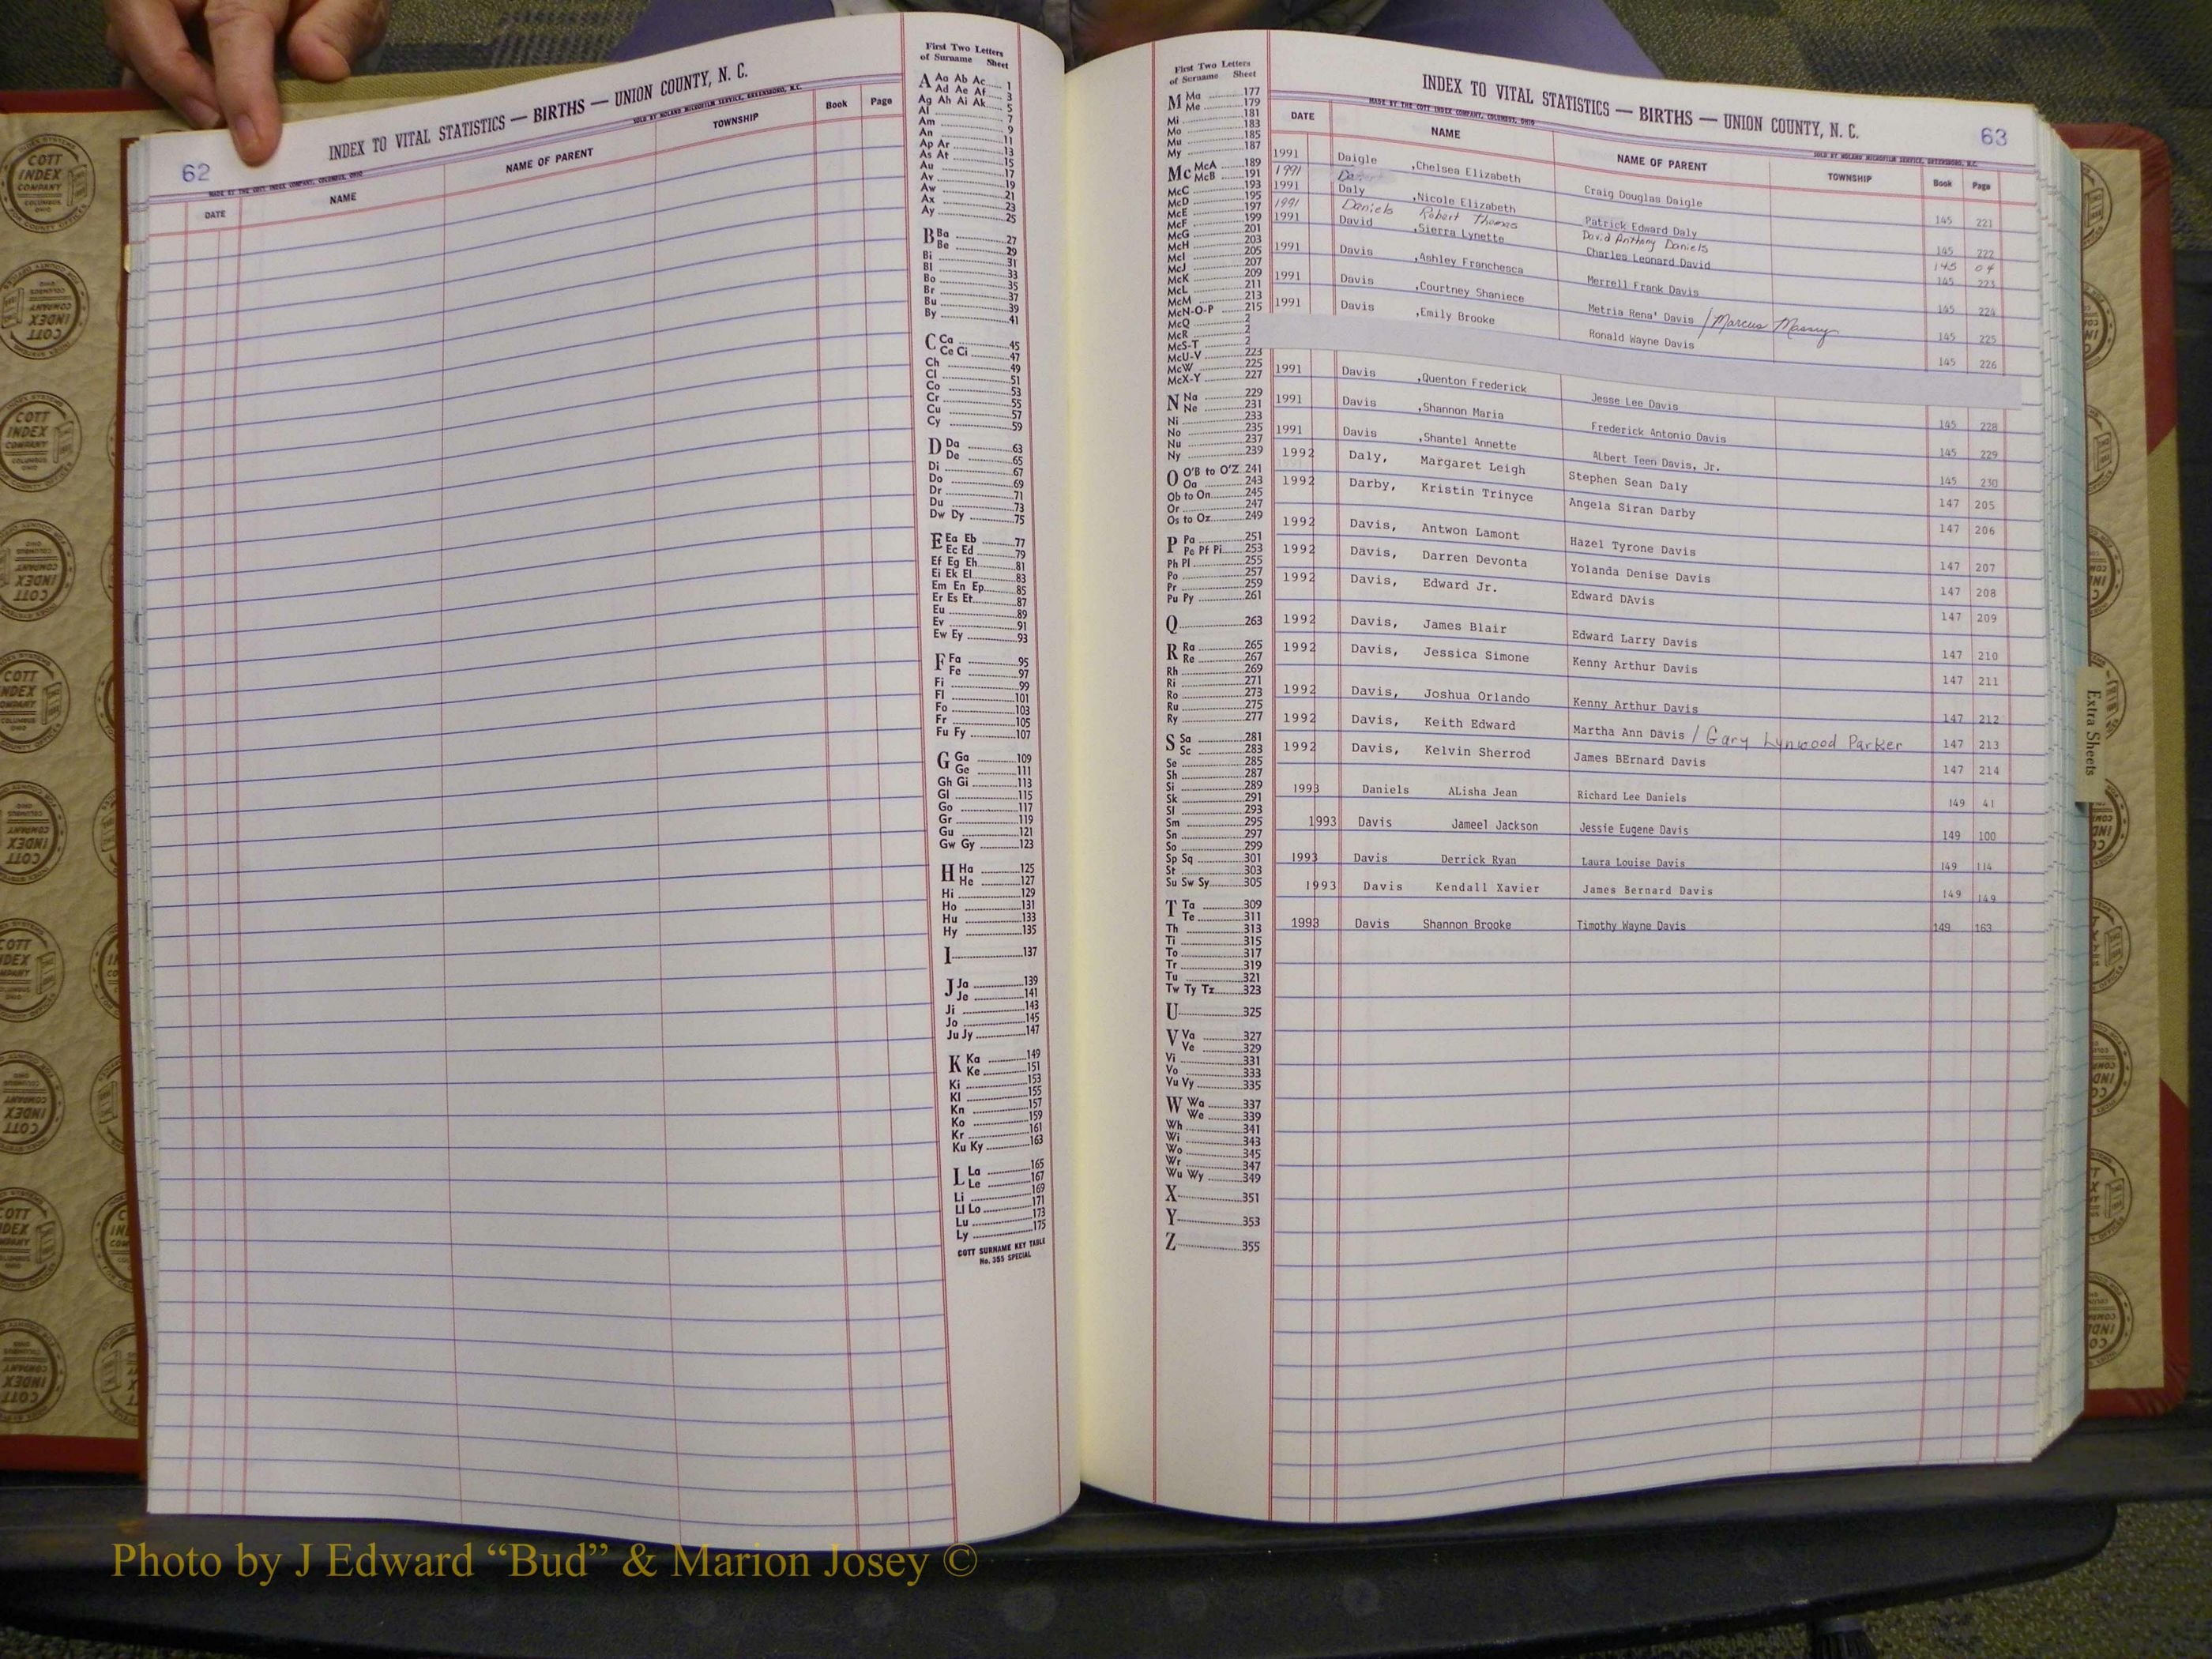 62
INDEX TO VITAL STATISTICS — BIRTHS — UNION COUNTY, N. C.
MADE BY THE COTT INDEX COMPANY, COLUMBUS, OHIO
SOLD BY NOLAND MICROFILM SERVICE, GREENSBORO, N.C.
DATE NAME NAME OF PARENT TOWNSHIP Book Page
First Two Letters
of Surname Sheet
A Aa Ab Ac 1
Ad Ae Af 3
Ag Ah Ai Ak 5
Al 7
Am 9
An 11
Ap Ar 13
As At 15
Au 17
Av 19
Aw 21
Ax 23
Ay 25
B Ba 27
Be 29
Bi 31
Bl 33
Bo 35
Br 37
Bu 39
By 41
C Ca 45
Ce Ci 47
Ch 49
Cl 51
Co 53
Cr 55
Cu 57
Cy 59
D Da 63
De 65
Di 67
Do 69
Dr 71
Du 73
Dw Dy 75
E Ea Eb 77
Ec Ed 79
Ef Eg Eh 81
Ei Ek El 83
Em En Ep 85
Er Es Et 87
Eu 89
Ev 91
Ew Ey 93
F Fa 95
Fe 97
Fi 99
Fl 101
Fo 103
Fr 105
Fu Fy 107
G Ga 109
Ge 111
Gh Gi 113
Gl 115
Go 117
Gr 119
Gu 121
Gw Gy 123
H Ha 125
He 127
Hi 129
Ho 131
Hu 133
Hy 135
I 137
J Ja 139
Je 141
Ji 143
Jo 145
Ju Jy 147
K Ka 149
Ke 151
Ki 153
Kl 155
Kn 157
Ko 159
Kr 161
Ku Ky 163
L La 165
Le 167
Li 169
Ll Lo 171
Lu 173
Ly 175
COTT SURNAME KEY TABLE
No. 355 SPECIAL
First Two Letters
of Surname Sheet
M Ma 177
Me 179
Mi 181
Mo 183
Mu 185
My 187
Mc McA 189
McB 191
McC 193
McD 195
McE 197
McF 199
McG 201
McH 203
McI 205
McJ 207
McK 209
McL 211
McM 213
McN-O-P 215
McQ 2
McR 2
McS-T 2
McU-V 223
McW 225
McX-Y 227
N Na 229
Ne 231
Ni 233
No 235
Nu 237
Ny 239
O O'B to O'Z 241
Oa 243
Ob to On 245
Or 247
Os to Oz 249
P Pa 251
Pe Pf Pi 253
Ph Pl 255
Po 257
Pr 259
Pu Py 261
Q 263
R Ra 265
Re 267
Rh 269
Ri 271
Ro 273
Ru 275
Ry 277
S Sa 281
Sc 283
Se 285
Sh 287
Si 289
Sk 291
Sl 293
Sm 295
Sn 297
So 299
Sp Sq 301
St 303
Su Sw Sy 305
T Ta 309
Te 311
Th 313
Ti 315
To 317
Tr 319
Tu 321
Tw Ty Tz 323
U 325
V Va 327
Ve 329
Vi 331
Vo 333
Vu Vy 335
W Wa 337
We 339
Wh 341
Wi 343
Wo 345
Wr 347
Wu Wy 349
X 351
Y 353
Z 355
INDEX TO VITAL STATISTICS — BIRTHS — UNION COUNTY, N. C.
63
MADE BY THE COTT INDEX COMPANY, COLUMBUS, OHIO
SOLD BY NOLAND MICROFILM SERVICE, GREENSBORO, N.C.
DATE NAME NAME OF PARENT TOWNSHIP Book Page
1991 Daigle ,Chelsea Elizabeth Craig Douglas Daigle 145 221
1991
1991 Daly ,Nicole Elizabeth Patrick Edward Daly 145 222
1991 Daniels Robert Thomas David Anthony Daniels 145 04
1991 David ,Sierra Lynette Charles Leonard David 145 223
1991 Davis ,Ashley Franchesca Merrell Frank Davis 145 224
1991 Davis ,Courtney Shaniece Metria Rena' Davis / Marcus Massey 145 225
1991 Davis ,Emily Brooke Ronald Wayne Davis 145 226
1991 Davis ,Quenton Frederick Jesse Lee Davis 145 228
1991 Davis ,Shannon Maria Frederick Antonio Davis 145 229
1991 Davis ,Shantel Annette ALbert Teen Davis, Jr. 145 230
1992 Daly, Margaret Leigh Stephen Sean Daly 147 205
1992 Darby, Kristin Trinyce Angela Siran Darby 147 206
1992 Davis, Antwon Lamont Hazel Tyrone Davis 147 207
1992 Davis, Darren Devonta Yolanda Denise Davis 147 208
1992 Davis, Edward Jr. Edward DAvis 147 209
1992 Davis, James Blair Edward Larry Davis 147 210
1992 Davis, Jessica Simone Kenny Arthur Davis 147 211
1992 Davis, Joshua Orlando Kenny Arthur Davis 147 212
1992 Davis, Keith Edward Martha Ann Davis / Gary Lynwood Parker 147 213
1992 Davis, Kelvin Sherrod James BErnard Davis 147 214
1993 Daniels ALisha Jean Richard Lee Daniels 149 41
1993 Davis Jameel Jackson Jessie Eugene Davis 149 100
1993 Davis Derrick Ryan Laura Louise Davis 149 114
1993 Davis Kendall Xavier James Bernard Davis 149 149
1993 Davis Shannon Brooke Timothy Wayne Davis 149 163
Extra Sheets
COTT
INDEX
COMPANY
COLUMBUS
OHIO
Photo by J Edward “Bud” & Marion Josey ©